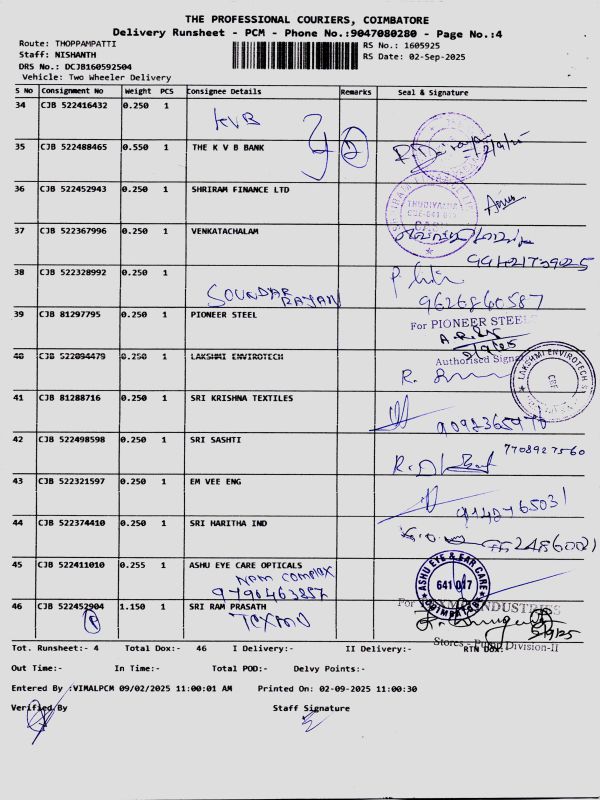 THE PROFESSIONAL COURIERS, COIMBATORE
Delivery Runsheet - PCM - Phone No.:9047080280 - Page No.:4
Route: THOPPAMPATTI
RS No.: 1605925
Staff: NISHANTH
RS Date: 02-Sep-2025
DRS No.: DCJB160592504
Vehicle: Two Wheeler Delivery
S No Consignment No Weight PCS Consignee Details Remarks Seal & Signature
34 CJB 522416432 0.250 1 KVB
35 CJB 522488465 0.550 1 THE K V B BANK 2
36 CJB 522452943 0.250 1 SHRIRAM FINANCE LTD
37 CJB 522367996 0.250 1 VENKATACHALAM
38 CJB 522328992 0.250 1
SOUNDAR RAJAN 9626840587
39 CJB 81297795 0.250 1 PIONEER STEEL For PIONEER STEEL
Authorised Signa
40 CJB 522094479 0.250 1 LAKSHMI ENVIROTECH
LAKSHMI ENVIROTECH
CBE
41 CJB 81288716 0.250 1 SRI KRISHNA TEXTILES
9092365970
42 CJB 522498598 0.250 1 SRI SASHTI 7708927560
43 CJB 522321597 0.250 1 EM VEE ENG
44 CJB 522374410 0.250 1 SRI HARITHA IND
45 CJB 522411010 0.255 1 ASHU EYE CARE OPTICALS
ASHU EYE & EAR CARE
641 017
COIMBATORE
46 CJB 522452904 1.150 1 SRI RAM PRASATH
P TEXMO
For INDUSTRIES
Stores - Division-II
Tot. Runsheet:- 4 Total Dox:- 46 I Delivery:- II Delivery:- RTN Dox:-
Out Time:- In Time:- Total POD:- Delvy Points:-
Entered By :VIMALPCM 09/02/2025 11:00:01 AM Printed On: 02-09-2025 11:00:30
Verified By Staff Signature